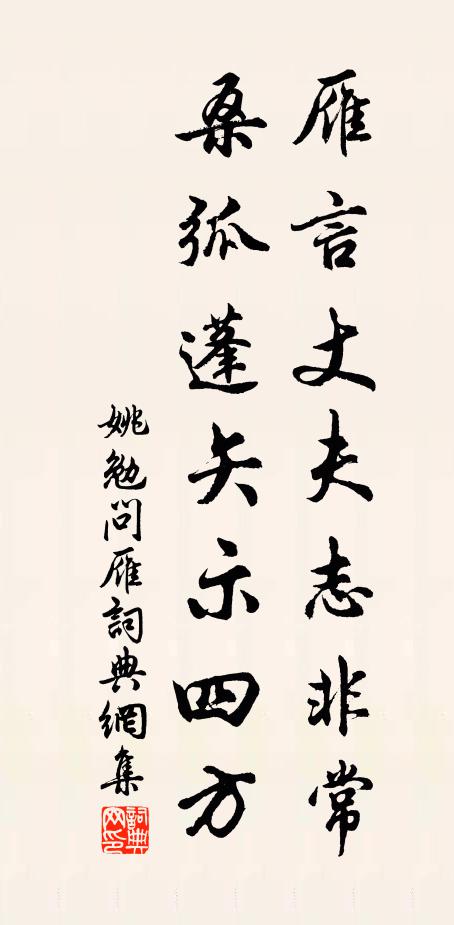 雁言丈夫志非常
桑弧蓬矢示四方
姚勉問雁詞典網集
詞典網印